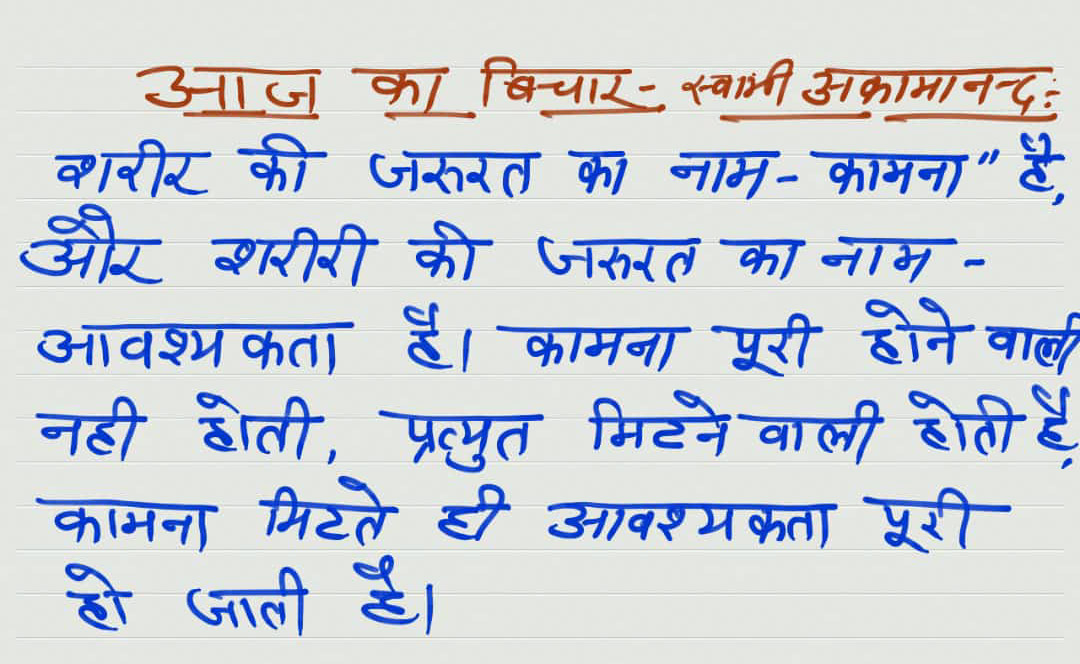 आज का बिचार- स्वामी अकामानन्दः
शरीर की जरुरत का नाम- कामना" है,
और शरीरी की जरुरत का नाम -
आवश्यकता है। कामना पूरी होने वाली
नही होती, प्रत्युत मिटने वाली होती है,
कामना मिटते ही आवश्यकता पूरी
हो जाती है।